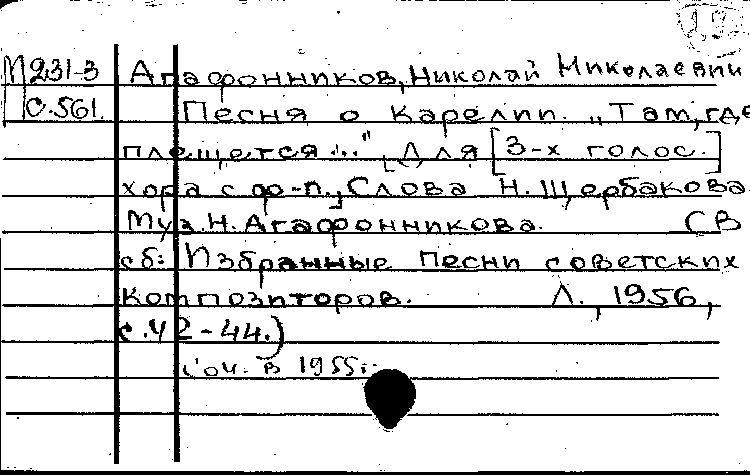 М231-3 Агафонников, Николай Николаевич
С.561. Песня о Карелии. „Там, где
плещется..." [Для [3-х голос.]
хора с ф-п., Слова Н. Щербакова.
Муз. Н. Агафонникова. (В
сб: Избранные песни советских
композиторов. Л., 1956,
с. 42-44.)
Соч. в 1955г.